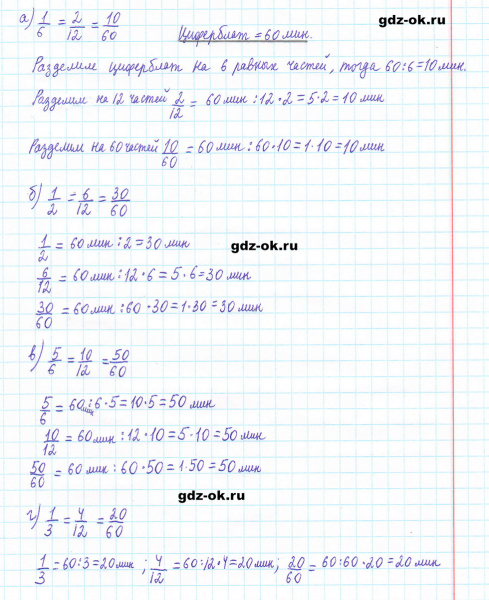 gdz-ok.ru
а) 1/6 = 2/12 = 10/60
Циферблат = 60 мин.
Разделим циферблат на 6 равных частей, тогда 60:6=10 мин.
Разделим на 12 частей 2/12 = 60 мин : 12 • 2 = 5 • 2 = 10 мин
Разделим на 60 частей 10/60 = 60 мин : 60 • 10 = 1 • 10 = 10 мин
б) 1/2 = 6/12 = 30/60
1/2 = 60 мин : 2 = 30 мин
gdz-ok.ru
6/12 = 60 мин : 12 • 6 = 5 • 6 = 30 мин
30/60 = 60 мин : 60 • 30 = 1 • 30 = 30 мин
в) 5/6 = 10/12 = 50/60
5/6 = 60 мин : 6 • 5 = 10 • 5 = 50 мин
10/12 = 60 мин : 12 • 10 = 5 • 10 = 50 мин
50/60 = 60 мин : 60 • 50 = 1 • 50 = 50 мин
gdz-ok.ru
г) 1/3 = 4/12 = 20/60
1/3 = 60:3 = 20 мин ; 4/12 = 60:12 • 4 = 20 мин ; 20/60 = 60:60 • 20 = 20 мин